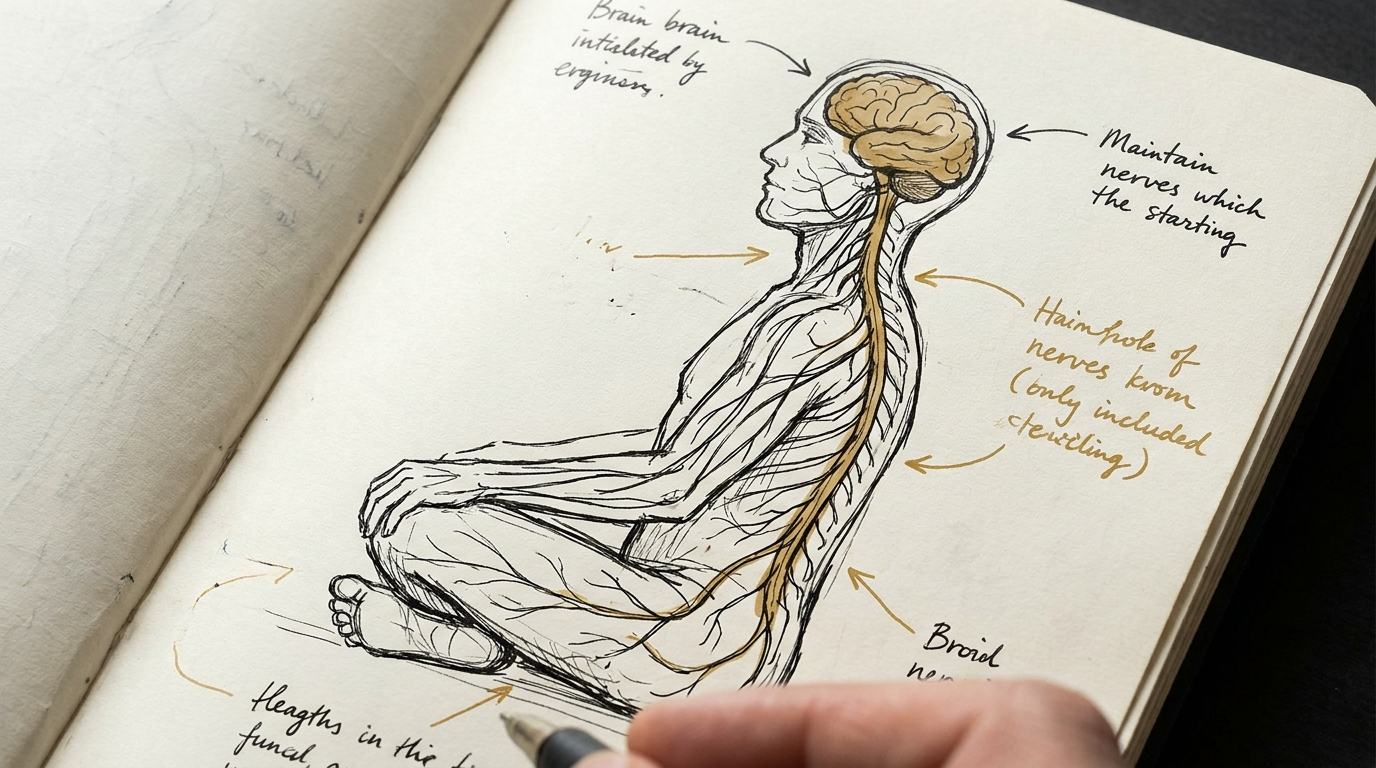 Brain brain
intialated by
erginors.
Maintain
nerves which
the starting
Haimhole of
nerves krom
(only included
Broid
Heagths in the
funed,